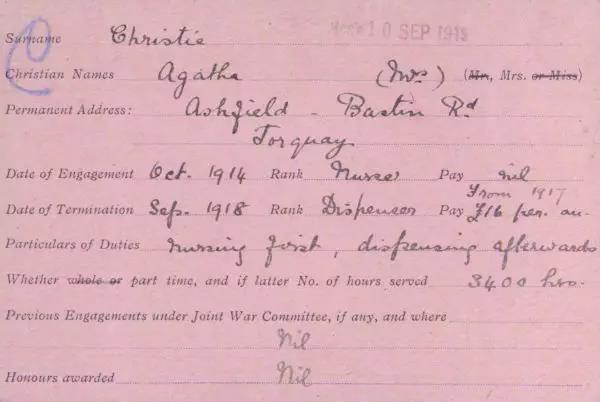 10 SEP 1918
Surname Christie
Christian Names Agatha (Mrs) (Mr, Mrs. or Miss)
Permanent Address: Ashfield - Barton Rd
Torquay
Date of Engagement Oct. 1914 Rank Nurse Pay nil
From 1917
Date of Termination Sep. 1918 Rank Dispenser Pay £16 per. an.
Particulars of Duties nursing first, dispensing afterwards
Whether whole or part time, and if latter No. of hours served 3400 hrs.
Previous Engagements under Joint War Committee, if any, and where
Nil
Honours awarded Nil